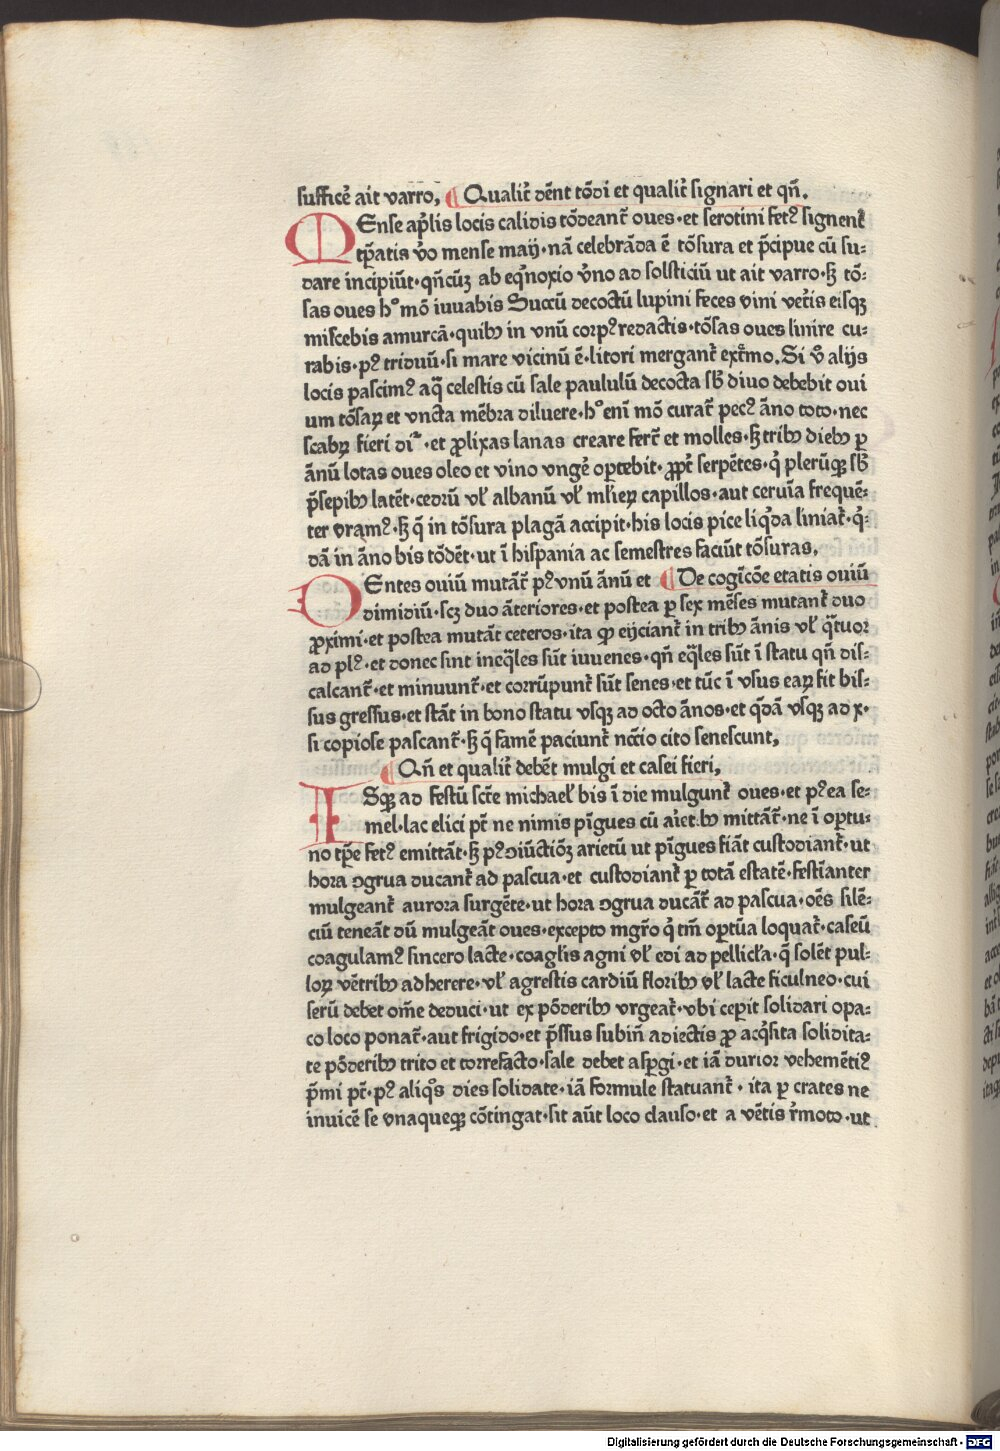 sufficẽ ait varro, ¶ Qualit᷑ dẽnt tõdi et qualit᷑ signari et qñ.
MEnse ap̃lis locis calidis tõdeant᷑ oues·et serotini fetꝰ signent᷑
tp̃atis v̾o mense maij·nã celebrãda ẽ tõsura et p̃cipue cũ su⸗
dare incipiũt·qñcũqꝫ ab eq̃noxio v̾no ad solsticiũ ut ait varro·sꝫ tõ⸗
sas oues h° mõ iuuabis Succũ decoctũ lupini feces vini vet᷑is eisqꝫ
miscebis amurcã·quibꝫ in vnũ corpꝰ redactis·tõsas oues linire cu⸗
rabis·pꝰ triduũ·si mare vicinũ ẽ·litori mergant᷑ ext᷑mo. Si v̾o alijs
locis pascimꝰ aq̃ celestis cũ sale paululũ decocta sb̃ diuo debebit oui
um tõsaꝝ et vncta mẽbra diluere·h° eni᷑ mõ curat᷑ pecꝰ ãno toto·nec
scabꝝ fieri di᷑·et ꝓlixas lanas creare fert᷑ et molles·sꝫ tribꝫ diebꝫ ꝑ
ãnũ lotas oues oleo et vino vnge᷑ oꝑtebit·ꝓpt᷑ serpẽtes·q᷑ plerũqꝫ sb̃
p̃sepibꝫ latẽt·cedrũ vl̃ albanũ vl̃ ml̃ieꝝ capillos·aut ceruĩa frequẽ⸗
ter vramꝰ·sꝫ q̃ in tõsura plagã accipit·his locis pice liq᷑da liniat᷑·q᷑⸗
dã in ãno bis tõdẽt·ut ĩ hispania ac semestres faciũt tõsuras,
DEntes ouiũ mutãt᷑ pꝰ vnũ ãnũ et ¶ De cogĩcõe etatis ouiũ
dimidiũ·scꝫ duo ãteriores·et postea ꝑ sex mẽses mutant᷑ duo
ꝓximi·et postea mutãt᷑ ceteros·ita qꝫ eijciant᷑ in tribꝫ ãnis vl̃ q̃tuor
ad plꝰ·et donec sint ineq̃les sũt iuuenes·qñ eq̃les sũt ĩ statu qñ dis⸗
calcant᷑·et minuunt᷑·et corrũpunt᷑ sũt senes·et tũc ĩ vsus eaꝝ fit bis⸗
sus gressus·et stãt in bono statu vsqꝫ ad octo ãnos·et q̃dã vsqꝫ ad x·
si copiose pascant᷑·sꝫ q̃ famẽ paciunt᷑ nc̃cio cito senescunt,
¶ Qñ et qualit᷑ debẽt mulgi et casei fieri,
ISqꝫ ad festũ sc̃te michael᷑ bis ĩ die mulgunt᷑ oues·et pꝰ ea se⸗
mel·lac elici pt᷑ ne nimis pĩgues cũ ariet.bꝫ mittãt᷑·ne ĩ oꝑtu⸗
no tp̃e fetꝰ emittãt·sꝫ pꝰ ꝯiũctiõꝫ arietũ ut pĩgues fiãt custodiant᷑·ut
hora ꝯgrua ducant᷑ ad pascua·et custodiant᷑ ꝑ totã estatẽ·festĩanter
mulgeant᷑ aurora surgẽte·ut hora ꝯgrua ducãt᷑ ad pascua·oẽs silẽ⸗
ciũ teneãt dũ mulgeãt oues·excepto mg̃ro q᷑ tm̃ oꝑtũa loquat᷑·caseũ
coagulamꝰ sincero lacte·coagl᷑is agni vl̃ edi ad pellicl̃a·q̃ solẽt pul⸗
loꝝ vẽtribꝫ adherere·vl̃ agrestis cardiũ floribꝫ vl̃ lacte ficulneo·cui
serũ debet om̃e deduci·ut ex põderibꝫ vrgeat᷑·vbi ceperit solidari opa⸗
co loco ponat᷑·aut frigido·et p̃ssus subiñ adiectis ꝓ acq᷑sita solidita⸗
te põderibꝫ trito et torrefacto·sale debet aspergi·et iã durior vehemẽtiꝰ
p̃mi pt᷑·pꝰ aliq᷑s dies solidate·iã formule statuant᷑·ita ꝑ crates ne
inuicẽ se vnaqueqꝫ cõtingat·sit aũt loco clauso·et a vẽtis r᷑moto·ut
Digitalisierung gefördert durch die Deutsche Forschungsgemeinschaft - DFG